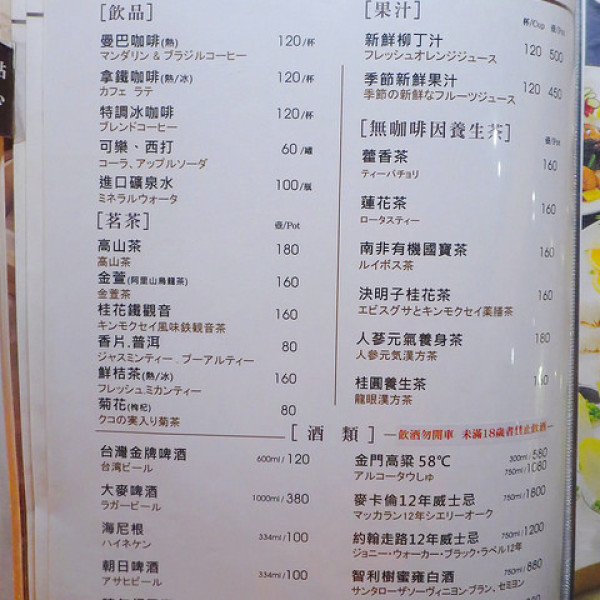 [飲品]
曼巴咖啡(熱) 120/杯
マンダリン & ブラジルコーヒー
拿鐵咖啡(熱/冰) 120/杯
カフェ ラテ
特調冰咖啡 120/杯
ブレンドコーヒー
可樂、西打 60/罐
コーラ、アップルソーダ
進口礦泉水 100/瓶
ミネラルウォータ
[茗茶] 壺/Pot
高山茶 180
高山茶
金萱(阿里山烏龍茶) 160
金萱茶
桂花鐵觀音 160
キンモクセイ風味鉄観音茶
香片.普洱 80
ジャスミンティー . プーアルティー
鮮桔茶(熱/冰) 160
フレッシュミカンティー
菊花(枸杞) 80
クコの実入り菊茶
[果汁] 杯/Cup 壺/Pot
新鮮柳丁汁 120 500
フレッシュオレンジジュース
季節新鮮果汁 120 450
季節の新鮮なフルーツジュース
[無咖啡因養生茶] 壺/Pot
藿香茶 160
ティーパチョリ
蓮花茶 160
ロータスティー
南非有機國寶茶 160
ルイボス茶
決明子桂花茶 160
エビスグサとキンモクセイ薬膳茶
人蔘元氣養身茶 180
人參元気漢方茶
桂圓養生茶
龍眼漢方茶
[酒類] 飲酒勿開車 未滿18歲者禁止飲酒
台灣金牌啤酒 600ml/120
台湾ビール
大麥啤酒 1000ml/380
ラガービール
海尼根 334ml/100
ハイネケン
朝日啤酒 334ml/100
アサヒビール
金門高粱 58℃ 300ml/580
アルコータウしゅ 750ml/1080
麥卡倫12年威士忌 750ml/1800
マッカラン12年シエリーオーク
約翰走路12年威士忌 750ml/1200
ジョニー・ウォーカー・ブラック・ラベル12年
智利樹蜜雍白酒 750ml/880
サンタローザソーヴィニヨンブラン、セミヨン